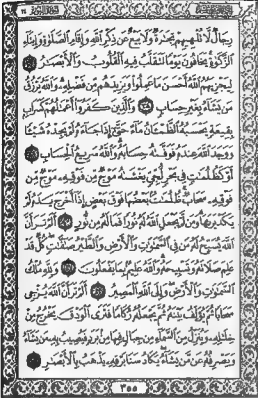 رِجَالٌ لَّا تُلْهِيهِمْ تِجَٰرَةٌ وَلَا بَيْعٌ عَن ذِكْرِ ٱللَّهِ وَإِقَامِ ٱلصَّلَوٰةِ وَإِيتَآءِ
ٱلزَّكَوٰةِ يَخَافُونَ يَوْمًا تَتَقَلَّبُ فِيهِ ٱلْقُلُوبُ وَٱلْأَبْصَٰرُ ٣٧
لِيَجْزِيَهُمُ ٱللَّهُ أَحْسَنَ مَا عَمِلُوا۟ وَيَزِيدَهُم مِّن فَضْلِهِۦ وَٱللَّهُ يَرْزُقُ
مَن يَشَآءُ بِغَيْرِ حِسَابٍ ٣٨ وَٱلَّذِينَ كَفَرُوٓا۟ أَعْمَٰلُهُمْ كَسَرَابٍۭ
بِقِيعَةٍ يَحْسَبُهُ ٱلظَّمْـَٔانُ مَآءً حَتَّىٰٓ إِذَا جَآءَهُۥ لَمْ يَجِدْهُ شَيْـًٔا
وَوَجَدَ ٱللَّهَ عِندَهُۥ فَوَفَّىٰهُ حِسَابَهُۥ وَٱللَّهُ سَرِيعُ ٱلْحِسَابِ ٣٩
أَوْ كَظُلُمَٰتٍ فِى بَحْرٍ لُّجِّىٍّ يَغْشَىٰهُ مَوْجٌ مِّن فَوْقِهِۦ مَوْجٌ مِّن
فَوْقِهِۦ سَحَابٌ ظُلُمَٰتٌۢ بَعْضُهَا فَوْقَ بَعْضٍ إِذَآ أَخْرَجَ يَدَهُۥ لَمْ
يَكَدْ يَرَىٰهَا وَمَن لَّمْ يَجْعَلِ ٱللَّهُ لَهُۥ نُورًا فَمَا لَهُۥ مِن نُّورٍ ٤٠ أَلَمْ تَرَ أَنَّ
ٱللَّهَ يُسَبِّحُ لَهُۥ مَن فِى ٱلسَّمَٰوَٰتِ وَٱلْأَرْضِ وَٱلطَّيْرُ صَٰٓفَّٰتٍ كُلٌّ قَدْ
عَلِمَ صَلَاتَهُۥ وَتَسْبِيحَهُۥ وَٱللَّهُ عَلِيمٌۢ بِمَا يَفْعَلُونَ ٤١ وَلِلَّهِ مُلْكُ
ٱلسَّمَٰوَٰتِ وَٱلْأَرْضِ وَإِلَى ٱللَّهِ ٱلْمَصِيرُ ٤٢ أَلَمْ تَرَ أَنَّ ٱللَّهَ يُزْجِى
سَحَابًا ثُمَّ يُؤَلِّفُ بَيْنَهُۥ ثُمَّ يَجْعَلُهُۥ رُكَامًا فَتَرَى ٱلْوَدْقَ يَخْرُجُ مِنْ
خِلَٰلِهِۦ وَيُنَزِّلُ مِنَ ٱلسَّمَآءِ مِن جِبَالٍ فِيهَا مِنۢ بَرَدٍ فَيُصِيبُ بِهِۦ مَن يَشَآءُ
وَيَصْرِفُهُۥ عَن مَّن يَشَآءُ يَكَادُ سَنَا بَرْقِهِۦ يَذْهَبُ بِٱلْأَبْصَٰرِ ٤٣
٣٥٥